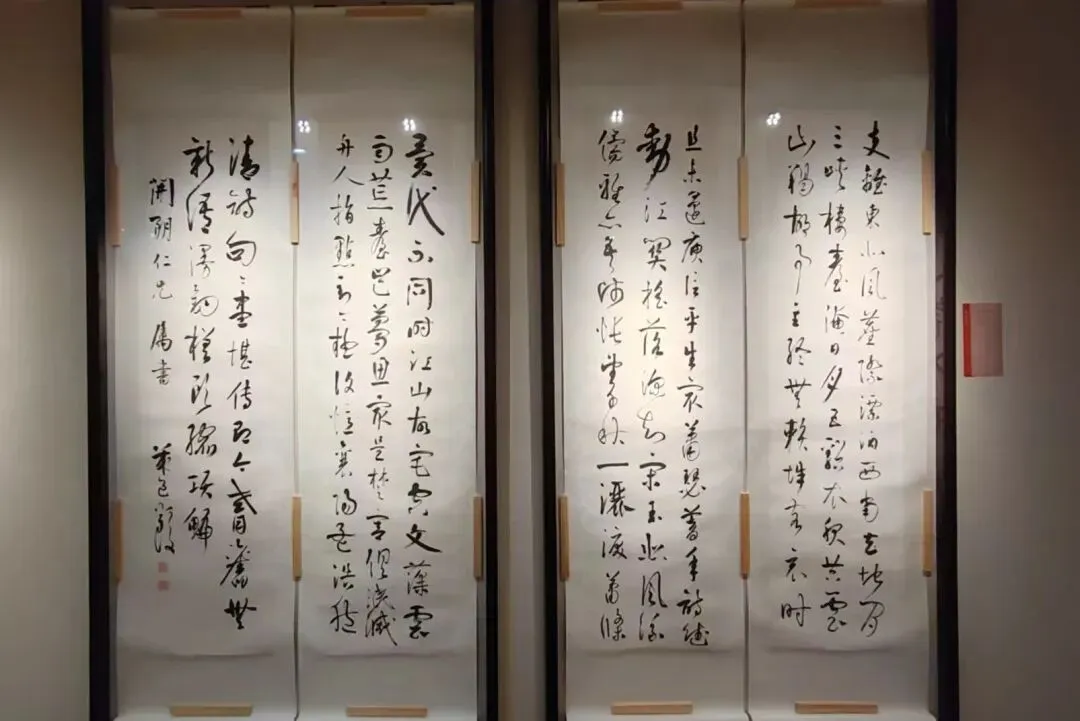 支離東北風塵際漂泊西南天地間
三峽樓臺淹日月五谿衣服共雲
山羯胡事主終無賴詞客哀時
且未還庾信平生最蕭瑟暮年詩賦
動江關搖落深知宋玉悲風流
儒雅亦吾師悵望千秋一灑淚蕭條
異代不同時江山故宅空文藻雲
雨荒臺豈夢思最是楚宮俱泯滅
舟人指點到今疑復憶襄陽孟浩然
清詩句句盡堪傳即今耆舊無
新語漫釣槎頭縮項鯿
開仁兄屬書